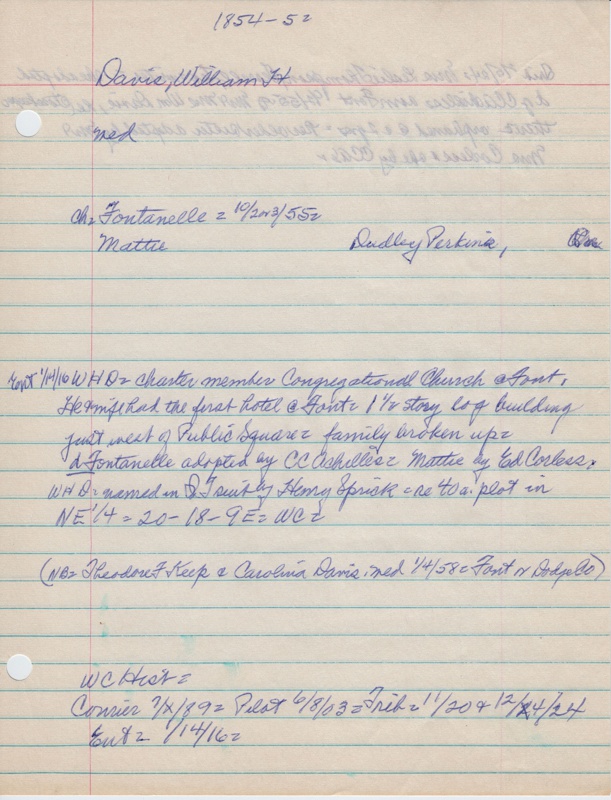 1854-5=
Davis, William H
med
ch= Fontanelle = 10/2or3/55=
Mattie Dudley Perkins,
Ent 1/14/16 W H D = charter member Congregational Church @ Font.
He & wife had the first hotel @ Font= 1 1/2 story log building
just west of Public Square= family broken up=
d Fontanelle adopted by CC Achilles= Mattie by Ed Corless.
W H D= named in Q T suit by Henry Sprick = re 40 a. plot in
NE 1/4 = 20-18-9E= WC=
(NB= Theodore F Keep & Carolina Davis, med 1/4/58= Font n Dodge Co)
WC Hist=
Courier 7/ /89= Pilot 6/8/03= Trib= 11/20 & 12/24/24
Ent= 1/14/16=